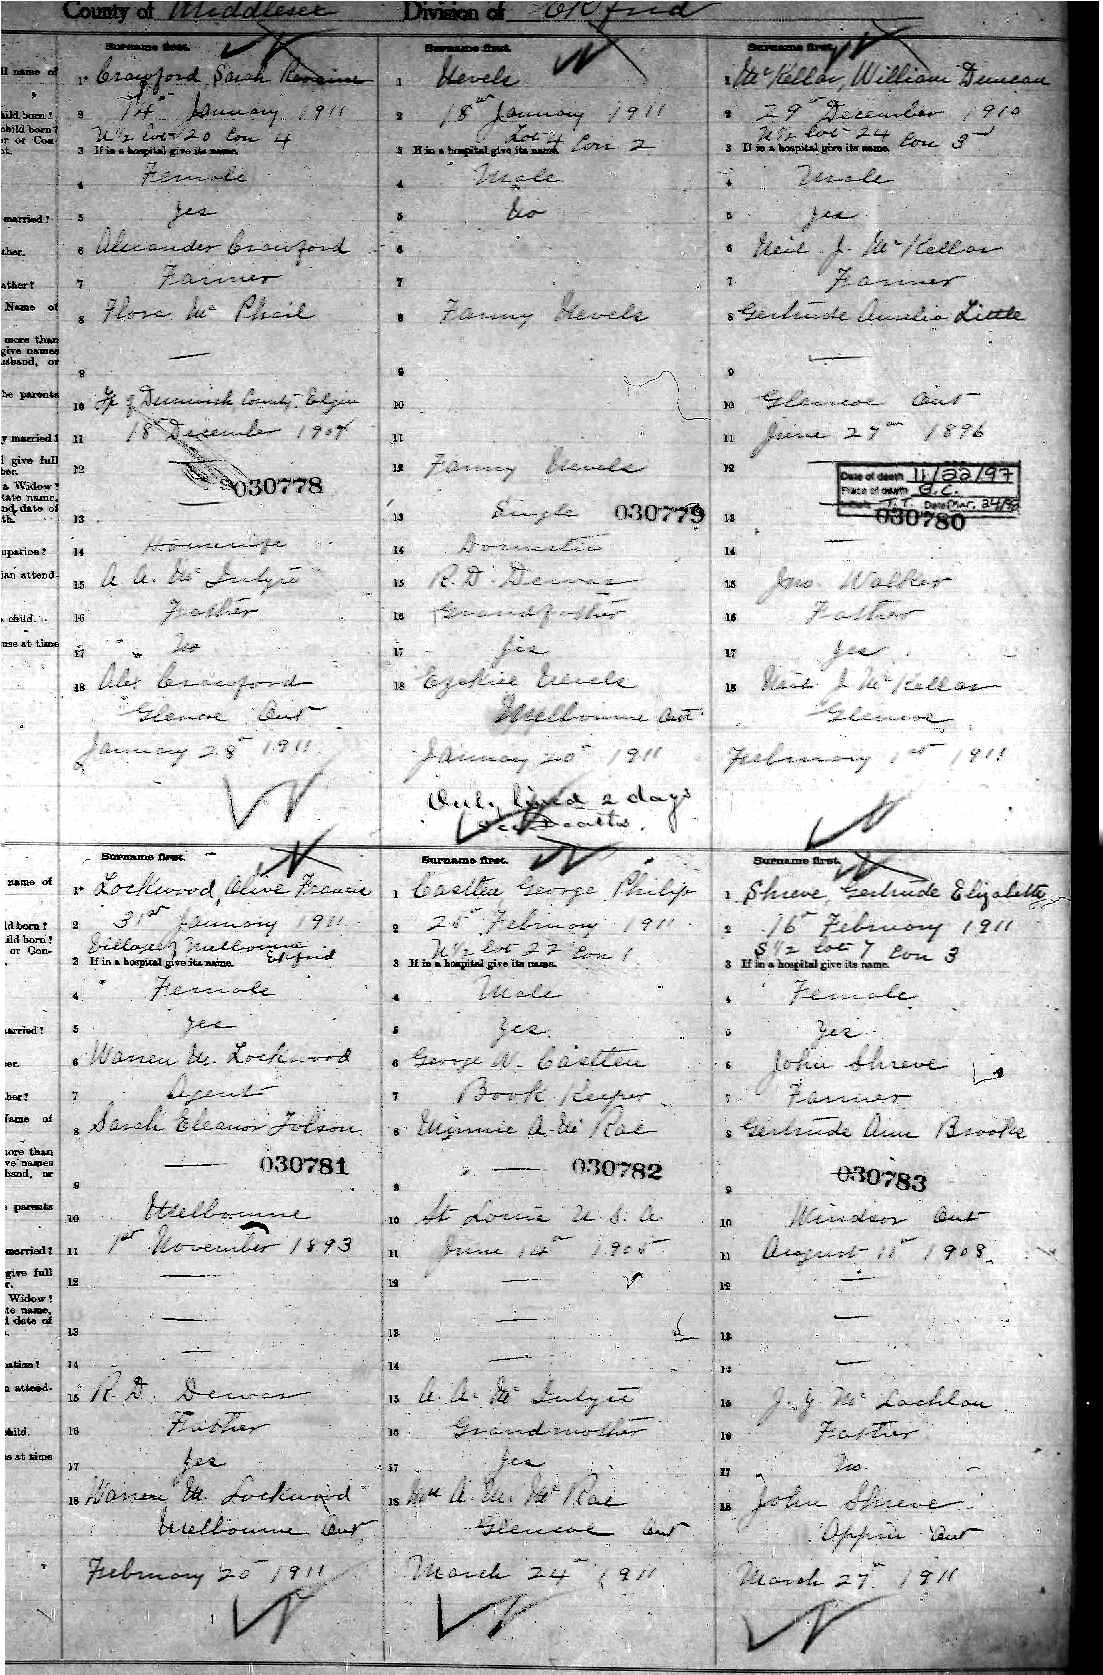 County of Middlesex Division of Ekfrid
Surname first.
1 Crawford, Sarah
2 14th January 1911
N½ Lot 20 Con 4
3 If in a hospital give its name.
4 Female
5 Yes
6 Alexander Crawford
7 Farmer
8 Flora Mc Phail
9 —
10 Tp of Dunwich County Elgin
11 18 December 1907
12 —
030778
13
14 Housewife
15 A. A. Mc Intyre
16 Father
17 No
18 Alex Crawford
Glencoe Ont
January 28th 1911
Surname first.
1 Nevels
2 18th January 1911
Lot 4 Con 2
3 If in a hospital give its name.
4 Male
5 No
6
7
8 Fanny Nevels
9
10
11
12 Fanny Nevels
13 Single 030779
14 Domestic
15 R. D. Dewar
16 Grandfather
17 Yes
18 Ezekiel Nevels
Melbourne Ont
January 20th 1911
Only lived 2 days
See Deaths.
Surname first.
1 McKellar, William Duncan
2 29th December 1910
N½ Lot 24 Con 3rd
3 If in a hospital give its name.
4 Male
5 Yes
6 Neil J. McKellar
7 Farmer
8 Gertrude Aurelia Little
9 —
10 Glencoe Ont
11 June 27th 1896
12
Date of death 11/22/97
Place of death B.C.
Initials T.T. Date Mar. 24/98
030780
13
14 —
15 Jno. Walker
16 Father
17 Yes
18 Neil J McKellar
Glencoe
February 1st 1911
Surname first.
1 Lockwood, Olive Francis
2 31st January 1911
Village of Melbourne
Ekfrid
3 If in a hospital give its name.
4 Female
5 Yes
6 Warren M. Lockwood
7 Agent
8 Sarah Eleanor Tolson
— 030781
9
10 Melbourne
11 1st November 1893
12 —
13 —
14 —
15 R. D. Dewar
16 Father
17 Yes
18 Warren M. Lockwood
Melbourne Ont
February 20th 1911
Surname first.
1 George Philip
2 February 1911
N½ Lot 22 Con 1
3 If in a hospital give its name.
4 Male
5 Yes
6 George N.
7 Book Keeper
8 Minnie A. Mc Rae
— 030782
9
10 St Louis U. S. A
11 June 14th 1905
12 —
13 —
14 —
15 A. A. Mc Intyre
16 Grandmother
17 Yes
18 Mrs A. M. Mc Rae
Glencoe Ont
March 24th 1911
Surname first.
1 Shreve, Gertrude Elizabeth
2 16th February 1911
S½ Lot 7 Con 3
3 If in a hospital give its name.
4 Female
5 Yes
6 John Shreve
7 Farmer
8 Gertrude Ann Brooke
030783
9
10 Windsor Ont
11 August 11th 1908
12 —
13 —
14 —
15 Mc Lachlan
16 Father
17 No
18 John Shreve
Appin Ont
March 27th 1911